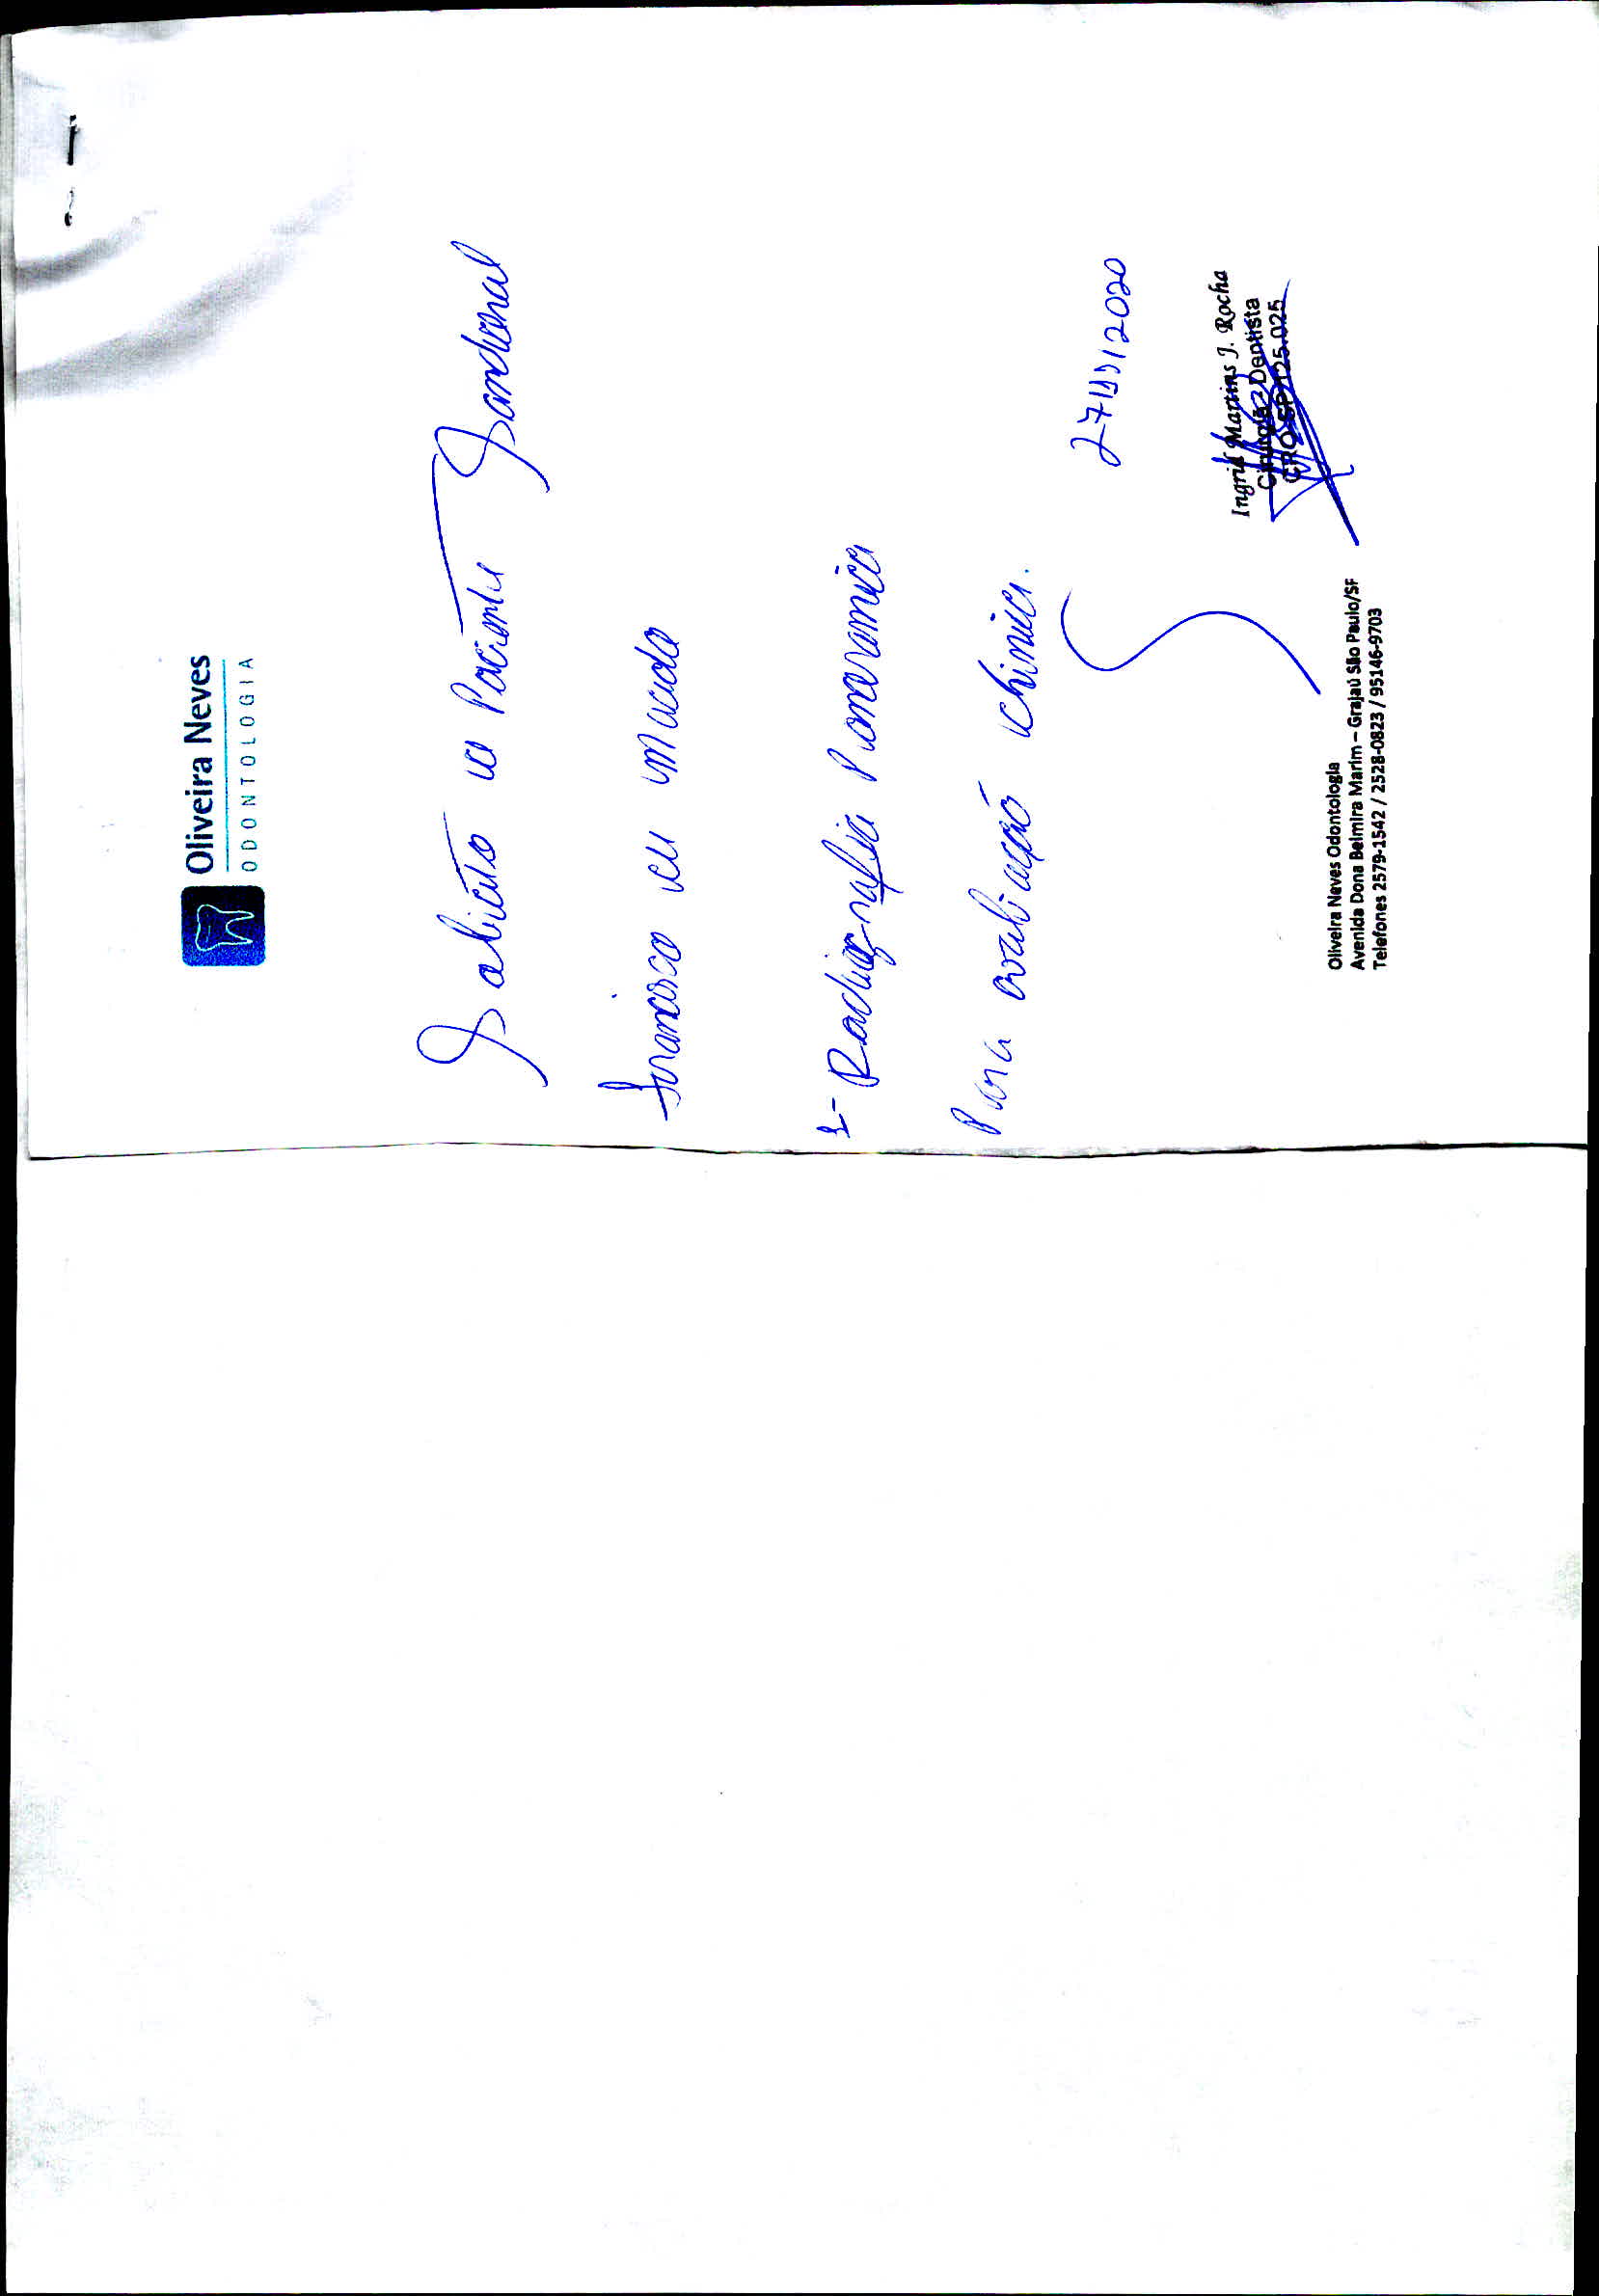 Oliveira Neves
ODONTOLOGIA
Solicito a Paciente
Francisco
1- Radiografia Panoramica
Para avaliação
27/11/2020
Ingrid Martins J. Rocha
Cirurgiã - Dentista
CRO SP 125.025
Oliveira Neves Odontologia
Avenida Dona Belmira Marim – Grajaú São Paulo/SP
Telefones 2579-1542 / 2528-0823 / 95146-9703